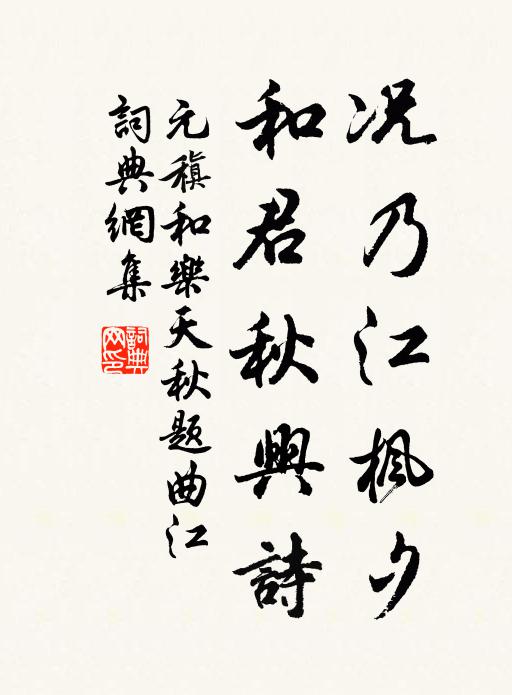 况乃江楓夕
和君秋興詩
元稹和樂天秋題曲江
詞典網集
詞典
网印